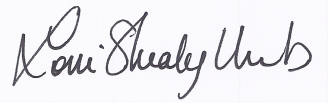 Lori Shealy Unb